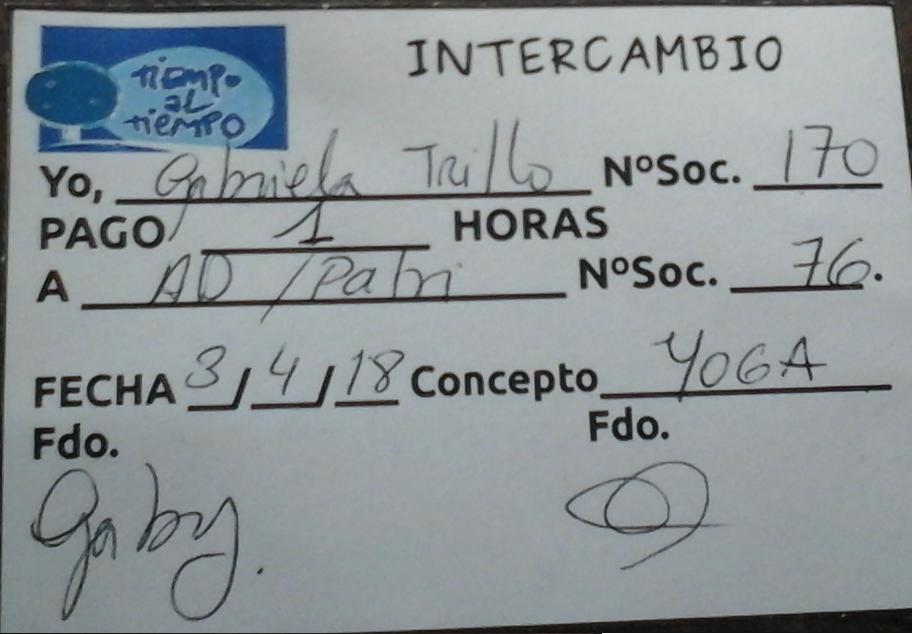 INTERCAMBIO
tiempo
al
tiempo
Yo, Gabriela Trillo NºSoc. 170
PAGO 1 HORAS
A AD / Patri NºSoc. 76.
FECHA 3/4/18 Concepto YOGA
Fdo. Fdo.
Gaby.